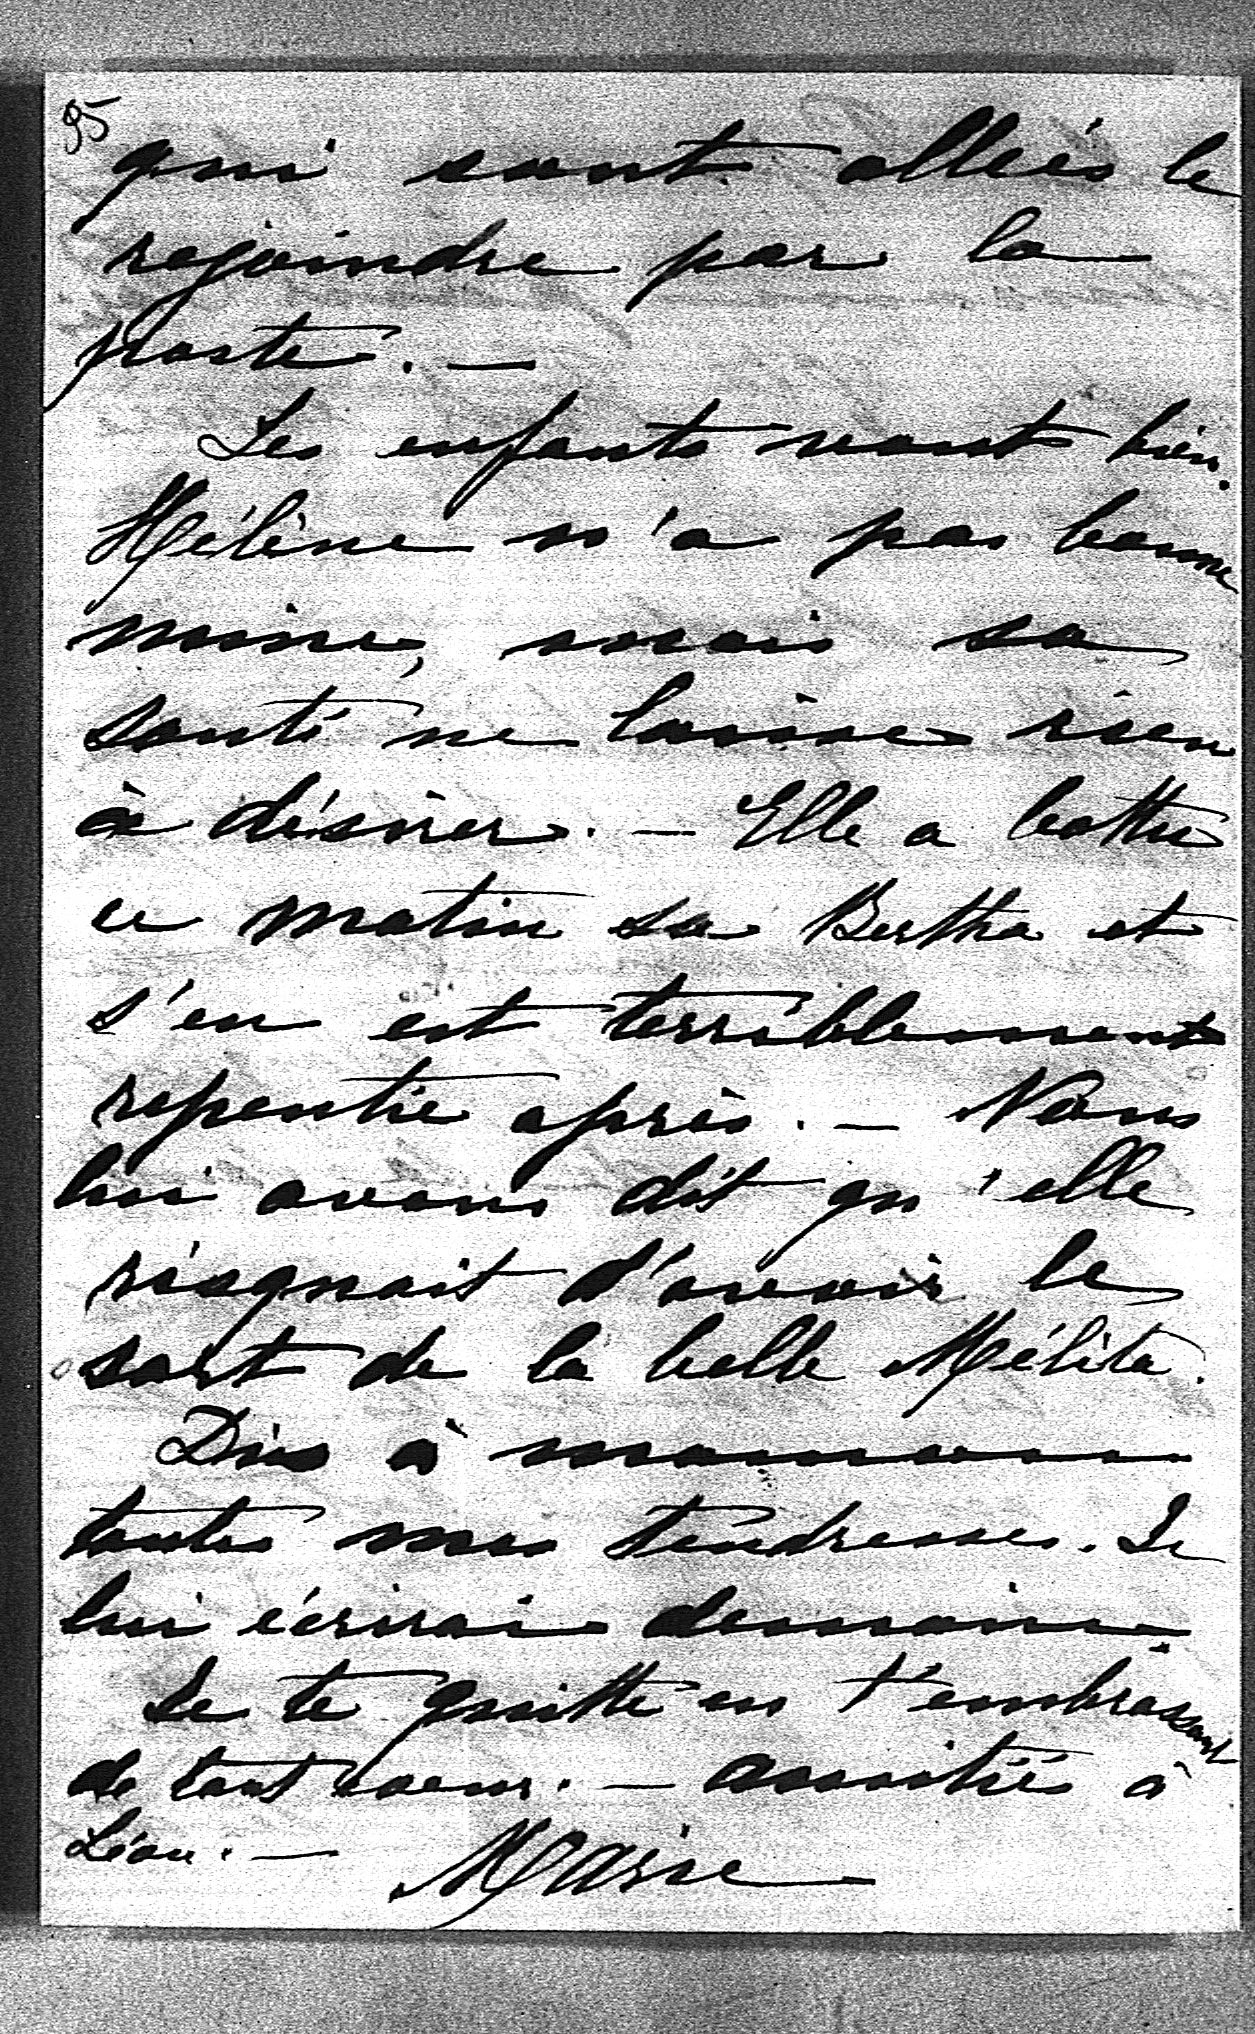 95
qui sont allés le
rejoindre par la
poste. —
Les enfants vont bien.
Hélène n'a pas bonne
mine, mais sa
santé ne laisse rien
à désirer. — Elle a battu
ce matin sa Bertha et
s'en est terriblement
repentie après. — Nous
lui avons dit qu'elle
risquait d'avoir le
sort de la belle Mélita.
Dis à maman
toutes mes tendresses. Je
lui écrirai demain.
Je te quitte en t'embrassant
de tout coeur. — amitiés à
Léon. — Marie